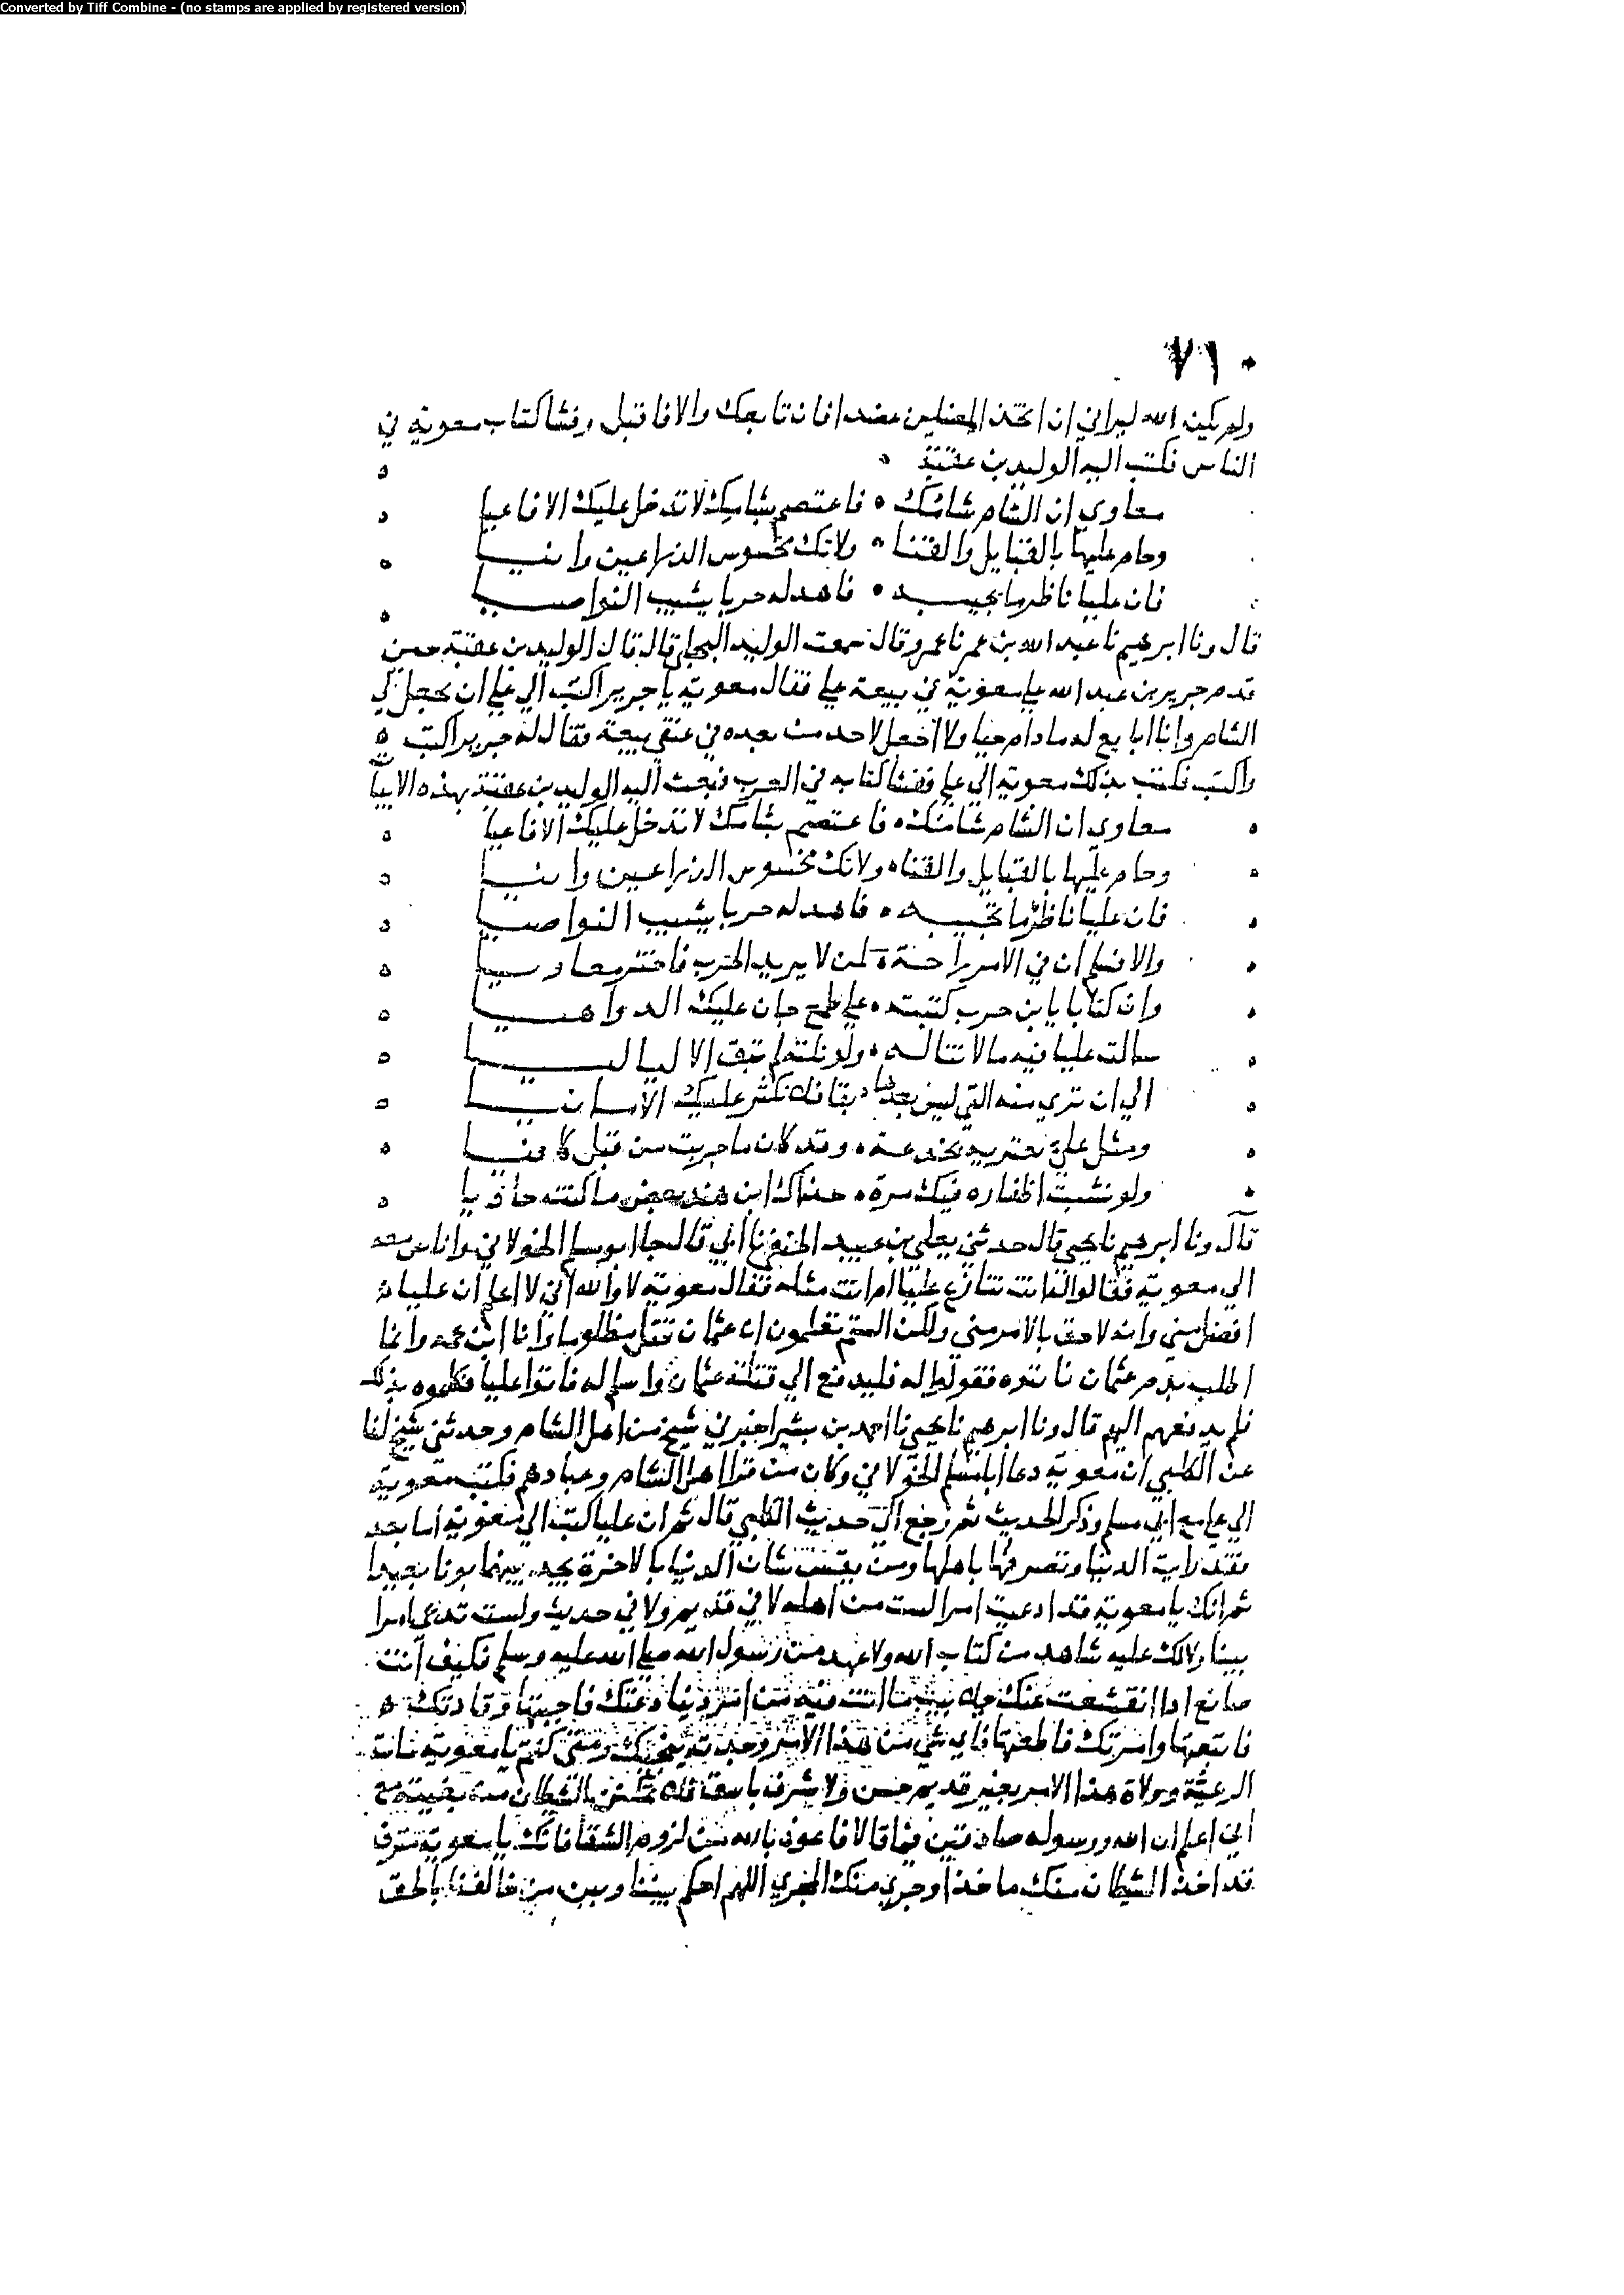 Converted by Tiff Combine - (no stamps are applied by registered version)
٧١٠
ولم يكن الله ليراني ان اتخذ المضلين عضدا فان تابعك والا فاقبل وفشا كتاب معوية في
الناس فكتب اليه الوليد بن عقبة
معاوي ان الشام شامك ه فاعتصم بشامك لا تدخل عليك الافاعيا
وحام عليها بالقبايل والقنا ه ولا تك مخسوس الذراعين وانيا
فان عليا ناظر ما تجيبه ه فاهد له حربا يشيب النواصيا
قال ونا ابرهيم نا عبد الله بن عمر نا عمرو قال سمعت الوليد البجلي قال قال الوليد بن عقبة حين
قدم جرير بن عبد الله علي معوية في بيعة علي فقال معوية يا جرير اكتب الي علي ان يجعل لي
الشام وانا ابايع له ما دام حيا ولا اجعل لاحد من بعده في عنقي بيعة فقال له جرير اكتب ه
واكتب فكتب بذلك معوية الي علي ففشا كتابه في العرب فبعث اليه الوليد بن عقبة بهذه الابيات
معاوي ان الشام شامك ه فاعتصم بشامك لا تدخل عليك الافاعيا
وحام عليها بالقبايل والقنا ه ولا تك مخسوس الذراعين وانيا
فان عليا ناظر ما تجيبه ه فاهد له حربا يشيب النواصيا
والا فسلم ان في الامر راحة ه لمن لا يريد الحرب فاختر معاويا
وان كتابا يا بن حرب كتبته ه علي طمع جان عليك الدواهيا
سالت عليا فيه ما لا تناله ه ولو نلته لم تبق الا لياليا
الي ان تري منه التي ليس بعدها بقا فلا تكثر عليك الامانيا
ومثل علي تعتريه بخدعة ه وقد كان ما جربت من قبل كافيا
ولو نشبت اظفاره فيك مرة ه حذاك ابن هند بعض ما كنت حاذيا
قال ونا ابرهيم نا يحيي قال حدثني يعلي بن عبيد الحنفي نا ابي قال جا ابو مسلم الخولاني واناس معه
الي معوية فقالوا له انت تنازع عليا ام انت مثله فقال معوية لا والله اني لا اعلم ان عليا
افضل مني وانه لاحق بالامر مني ولكن الستم تعلمون ان عثمان قتل مظلوما وانا ابن عمه وانما
اطلب بدم عثمان فاتوه فقولوا له فليدفع الي قتلة عثمان واسلم له فاتوا عليا فكلموه بذلك
فلم يدفعهم اليهم قال ونا ابرهيم نا يحيي نا احمد بن بشير اخبرني شيخ من اهل الشام وحدثني شيخ لنا
عن الكلبي ان معوية دعا ابا مسلم الخولاني وكان من قرا اهل الشام وعبادهم فكتب معوية
الي علي مع ابي مسلم وذكر الحديث ثم رجع الي حديث الكلبي قال ثم ان عليا كتب الي معوية اما بعد
فقد رايت الدنيا وتصرفها باهلها ومن يقس شان الدنيا بالاخرة يجد بينهما بونا بعيدا
ثم انك يا معوية قد ادعيت امرا لست من اهله لا في قديم ولا في حديث ولست تدعي امرا
بينا ولا لك عليه شاهد من كتاب الله ولا عهد من رسول الله صلي الله عليه وسلم فكيف انت
صانع اذا انقشعت عنك ما انت فيه من امر دنيا دعتك فاجبتها وقادتك ه
فاتبعتها وامرتك فاطعتها فاي شي من هذا الامر ومتي كنتم يا معوية ساسة
الرعية وولاة هذا الامر بغير قديم حسن ولا شرف باسق فلا تمكن الشيطان من بغيته مع
اني اعلم ان الله ورسوله صادقين فيما قالا فاعوذ بالله من لزوم الشقا فانك يا معوية مترف
قد اخذ الشيطان منك ماخذا وجري منك المجري اللهم احكم بيننا وبين من خالفنا بالحق